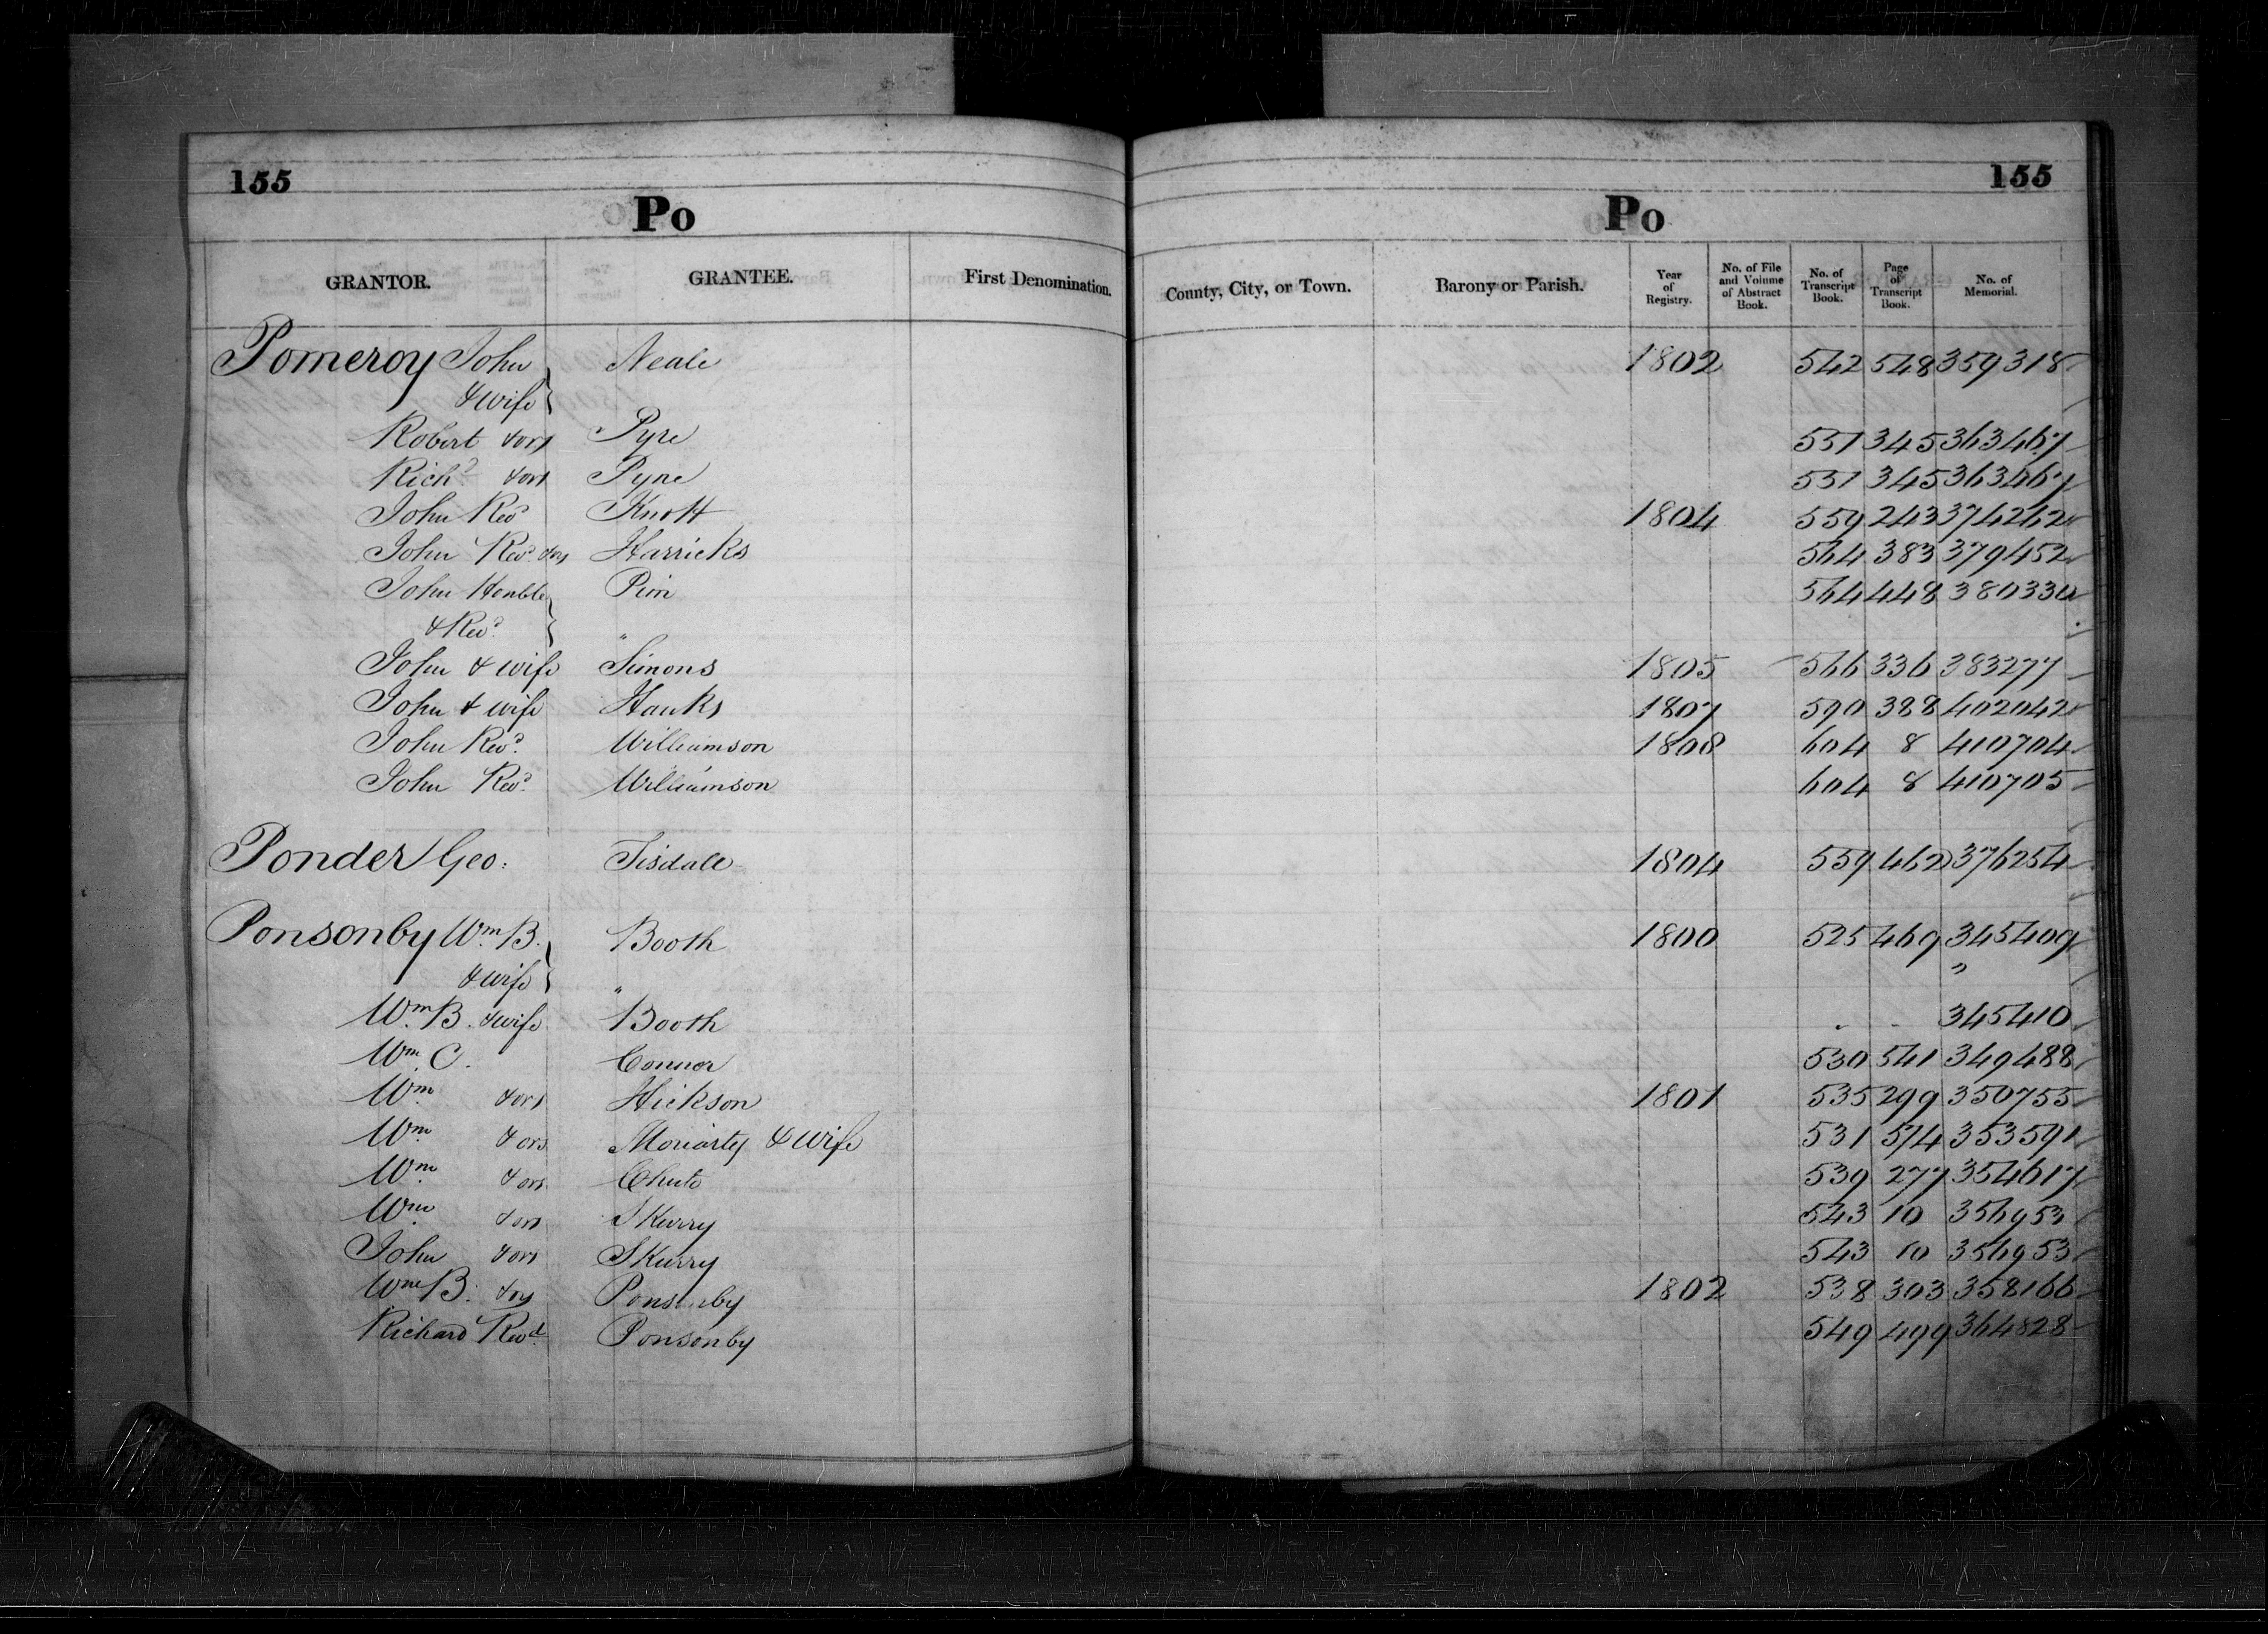 155 155
Po Po
GRANTOR. GRANTEE. First Denomination. County, City, or Town. Barony or Parish. Year of Registry. No. of File and Volume of Abstract Book. No. of Transcript Book. Page of Transcript Book. No. of Memorial.
Pomeroy John Neale 1802 542 548 359318
& wife
Robert & ors Pyre 551 345 363467
Richd & ors Pyne 551 345 363467
John Revd Knott 1804 559 243 374262
John Revd & ors Harricks 564 383 379452
John Honble Pim 564 448 380330
& Revd "
John & wife Simons 1805 566 336 383277
John & wife Hanks 1807 590 388 402042
John Revd Williamson 1808 604 8 410704
John Revd Williamson 604 8 410705
Ponder Geo: Tisdale 1804 559 462 376254
Ponsonby Wm B. Booth 1800 525 469 345409
& wife " "
Wm B. & wife Booth " " 345410
Wm C. Connor 530 541 349488
Wm & ors Hickson 1801 535 299 350755
Wm & ors Moriarty & wife 531 574 353591
Wm & ors Chute 539 277 354617
Wm & ors Skurry 543 10 356953
John & ors Skurry 543 10 356953
Wm B. & ors Ponsonby 1802 538 303 358166
Richard Revd Ponsonby 549 499 364828